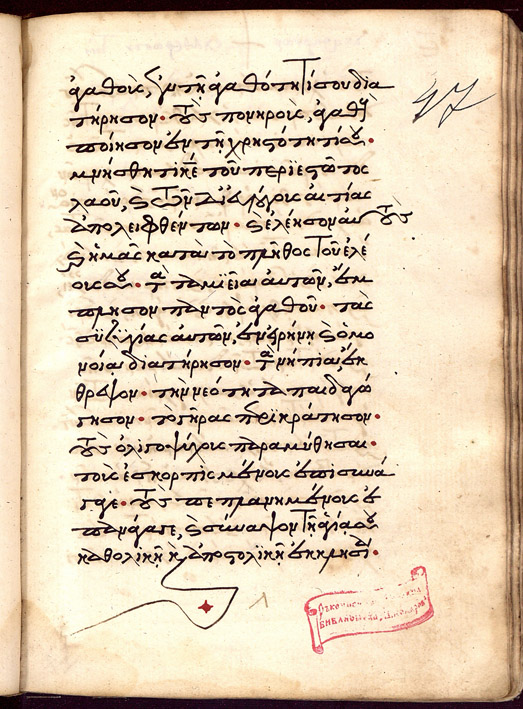 ἀγαθοὺς, ἐν τῇ ἀγαθότητί σου δια
τήρησον· τοὺς πονηροὺς, ἀγαθοὺς
ποίησον ἐν τῇ χρηστότητί σου·
μνήσθητι κ(ύρι)ε τοῦ περιεστῶτος
λαοῦ, καὶ τῶν δι' εὐλόγους αἰτίας
ἀπολειφθέντων· καὶ ἐλέησον αὐτοὺς
καὶ ἡμᾶς κατὰ τὸ πλῆθος τοῦ ἐλέ
ους σου· τὰ ταμεῖα αὐτῶν, ἔμ
πλησον παντὸς ἀγαθοῦ· τὰς
συζυγίας αὐτῶν, ἐν εἰρήνῃ καὶ ὁμο
νοίᾳ διατήρησον· τὰ νήπια, ἔκ
θρεψον· τὴν νεότητα παιδαγώ
γησον· τὸ γῆρας περικράτησον·
τοὺς ὀλιγοψύχους παραμύθησαι·
τοὺς ἐσκορπισμένους ἐπισυνά
γαγε· τοὺς πεπλανημένους ἐ
πανάγαγε, καὶ σύναψον τῇ ἁγίᾳ σου
καθολικῇ καὶ ἀποστολικῇ ἐκκλησίᾳ·
47
1